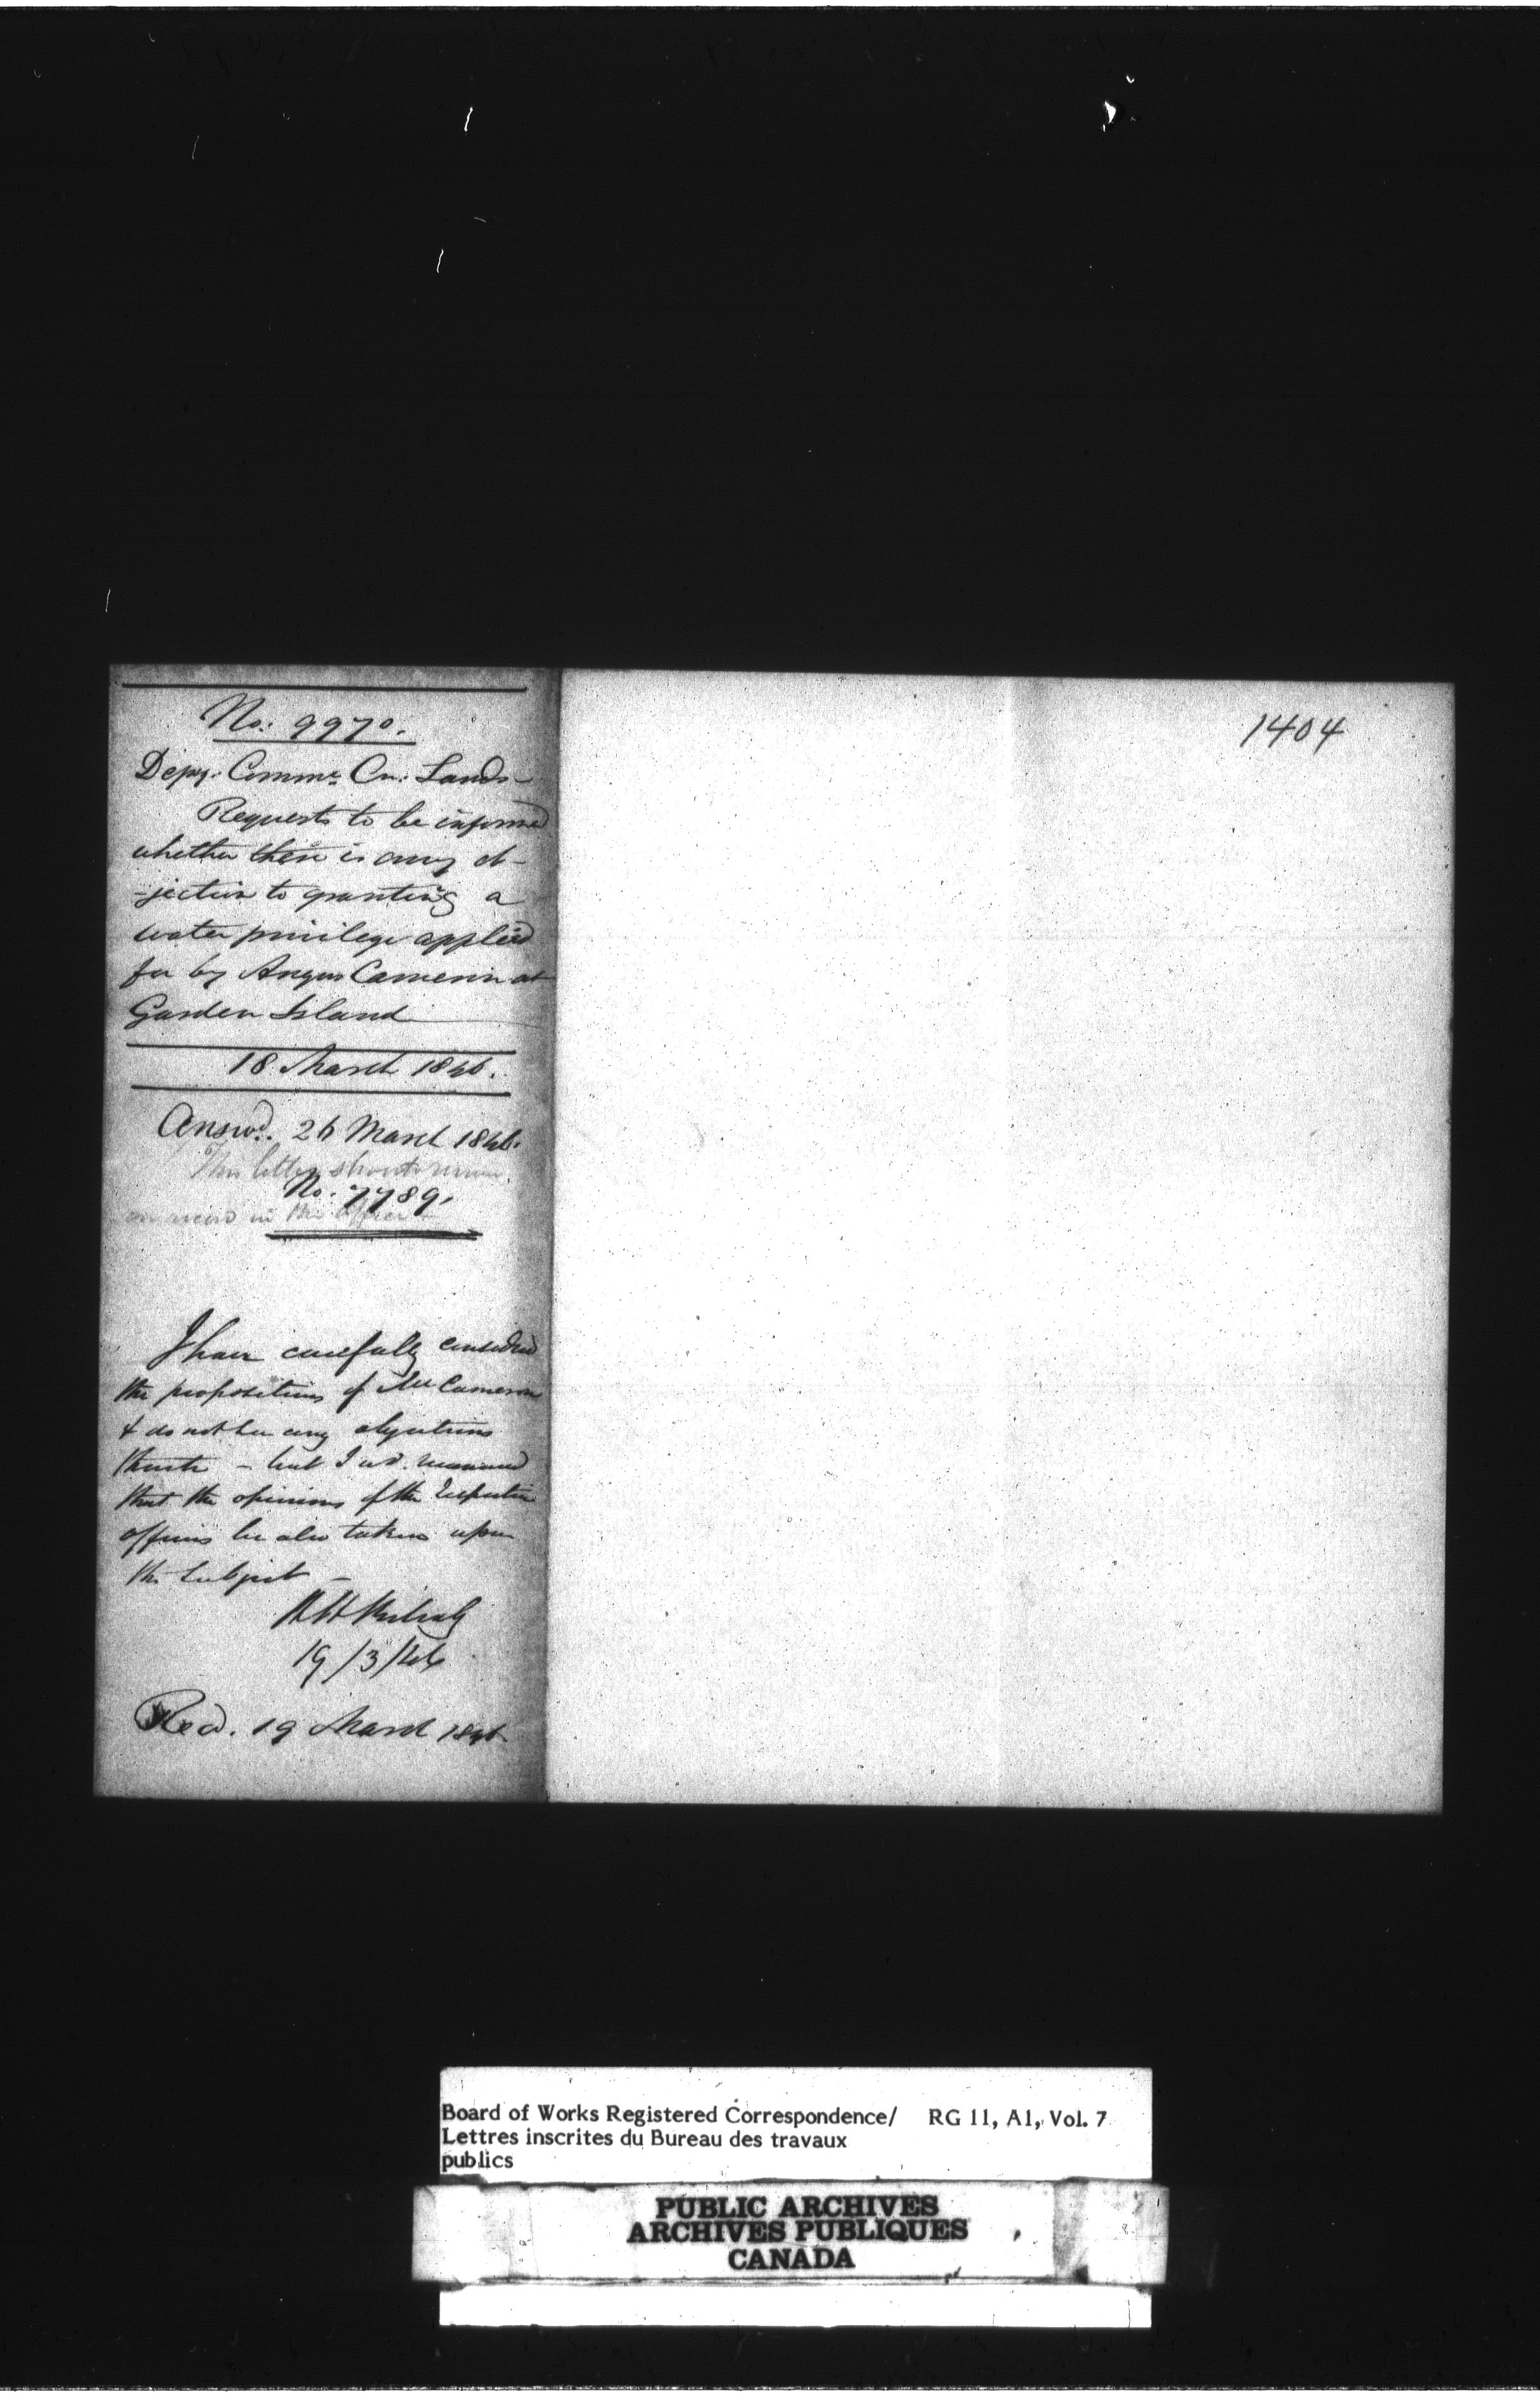 No: 9970.
Depy. Commr. Cn: Lands–
Requests to be informed
whether there is any ob-
-jection to granting a
water privilege applied
for by Angus Cameron at
Garden Island
18 March 1846.
Answd. 26 March 1846.
This letter should remain
No. 7789.
on record in this office
I have carefully considered
the propositions of Mr Cameron
& do not see any objections
thereto – but I wd. recommend
that the opinions of the
officers be also taken upon
the subject –
19/3/46
Recd. 19 March 1846
1404
Board of Works Registered Correspondence/ RG 11, A1, Vol. 7
Lettres inscrites du Bureau des travaux
publics
PUBLIC ARCHIVES
ARCHIVES PUBLIQUES
CANADA